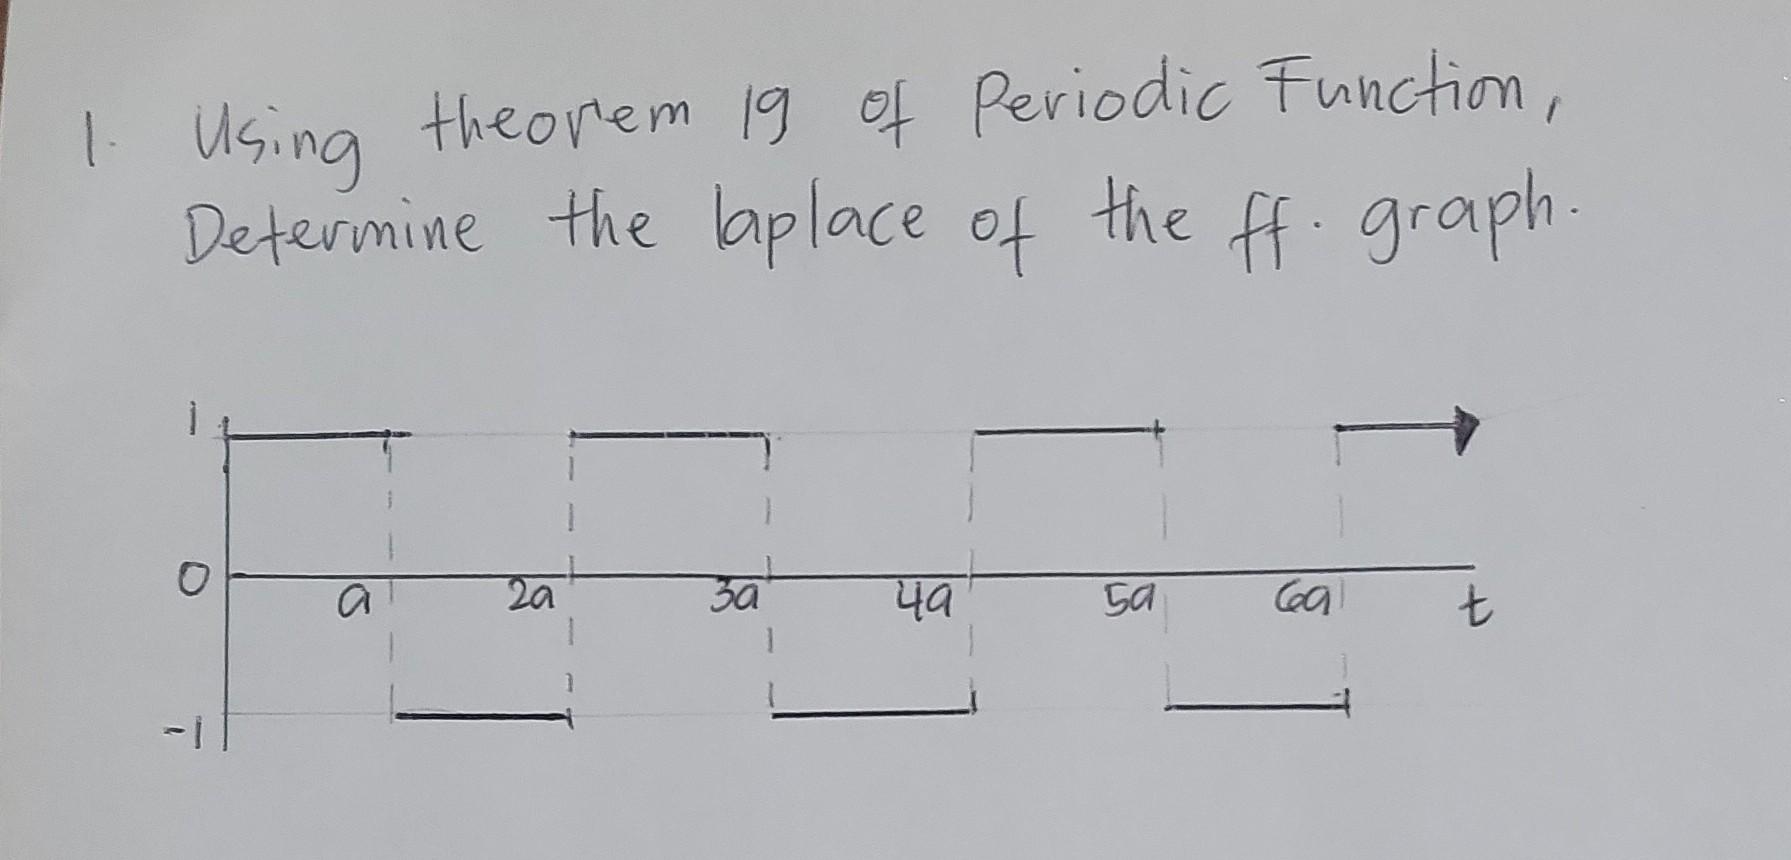 1. Using theorem 19 of Periodic Function,
Determine the laplace of the ff. graph.
1
0 a 2a 3a 4a 5a 6a t
-1